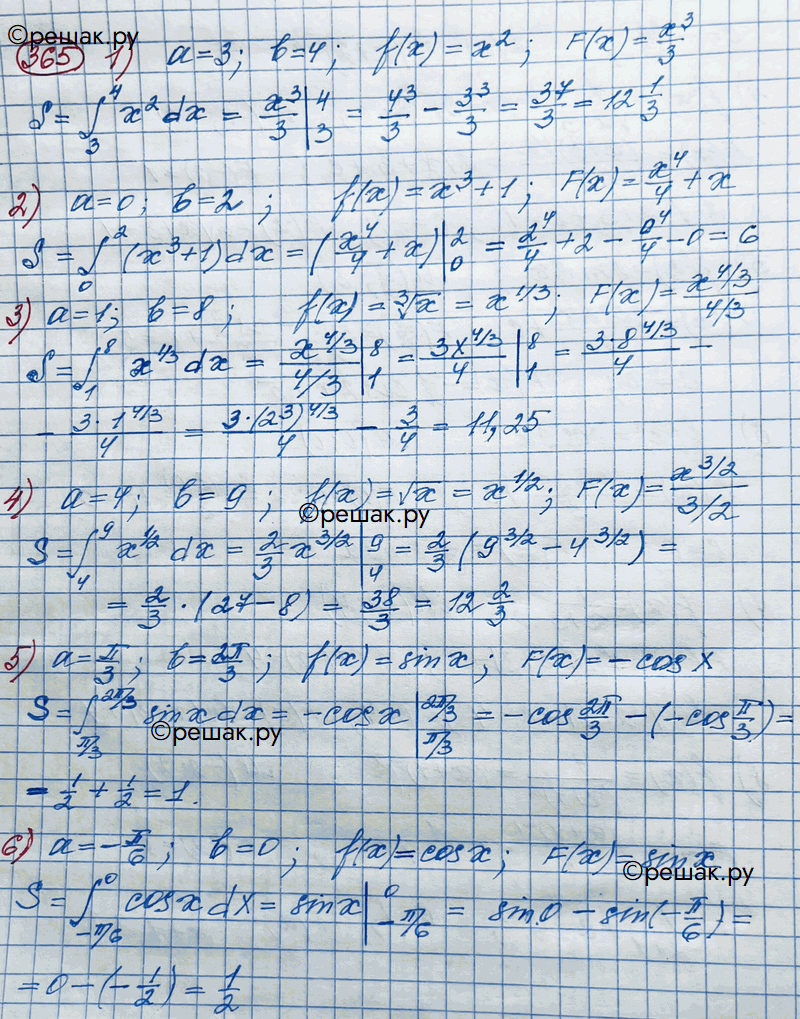 ©решак.ру
365 1) a=3; b=4; f(x)=x²; F(x)=x³/3
S=∫₃⁴ x² dx = x³/3 |₃⁴ = 4³/3 − 3³/3 = 37/3 = 12 1/3
2) a=0; b=2; f(x)=x³+1; F(x)=x⁴/4+x
S=∫₀² (x³+1)dx = (x⁴/4+x)|₀² = 2⁴/4+2−0⁴/4−0=6
3) a=1; b=8; f(x)=∛x=x^1/3; F(x)=x^4/3 / 4/3
S=∫₁⁸ x^1/3 dx = x^4/3 / 4/3 |₁⁸ = 3x^4/3 / 4 |₁⁸ = 3·8^4/3 / 4 −
− 3·1^4/3 / 4 = 3·(2³)^4/3 / 4 − 3/4 = 11,25
4) a=4; b=9; f(x)=√x=x^1/2; F(x)=x^3/2 / 3/2
©решак.ру
S=∫₄⁹ x^1/2 dx = 2/3 x^3/2 |₄⁹ = 2/3 (9^3/2 − 4^3/2) =
= 2/3 · (27−8) = 38/3 = 12 2/3
5) a=π/3; b=2π/3; f(x)=sin x; F(x)=−cos x
S=∫_π/3^2π/3 sin x dx = −cos x |_π/3^2π/3 = −cos 2π/3 − (−cos π/3) =
©решак.ру
= 1/2 + 1/2 = 1.
6) a=−π/6; b=0; f(x)=cos x; F(x)=sin x
©решак.ру
S=∫_−π/6^0 cos x dx = sin x |_−π/6^0 = sin 0 − sin(−π/6) =
= 0 − (−1/2) = 1/2